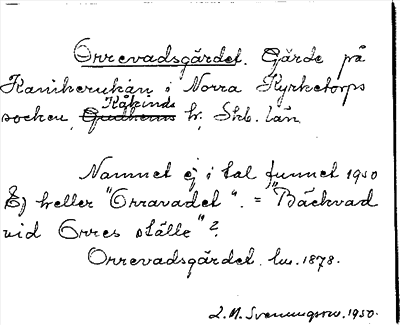 Orrevadsgärdet. Gärde på
Kanikerukan i Norra Kyrketorps
socken, Kåkinds hr. Skb. län
Namnet ej i tal funnet 1950
Ej heller "Orravadet". = "Bäckvad
vid Orres ställe"?
Orrevadsgärdet. lm. 1878.
L. M. Svenungsson. 1950.